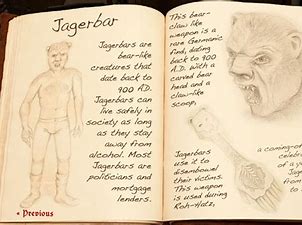 Jagerbar
Jagerbars are
bear-like
creatures that
date back to
900 A.D.
Jagerbars can
live safely in
society as long
as they stay
away from
alcohol. Most
Jagerbars are
politicians and
mortgage
lenders.
« Previous
This bear-
claw like
weapon is a rare
Germanic
find, dating
back to 900
A.D. With a
carved bear
head and a
claw-like
scoop,
Jagerbars
use it to
disembowel
their victims.
This weapon
is used during
Roh-Hatz,
a coming-of
celebra
of a y
Ja